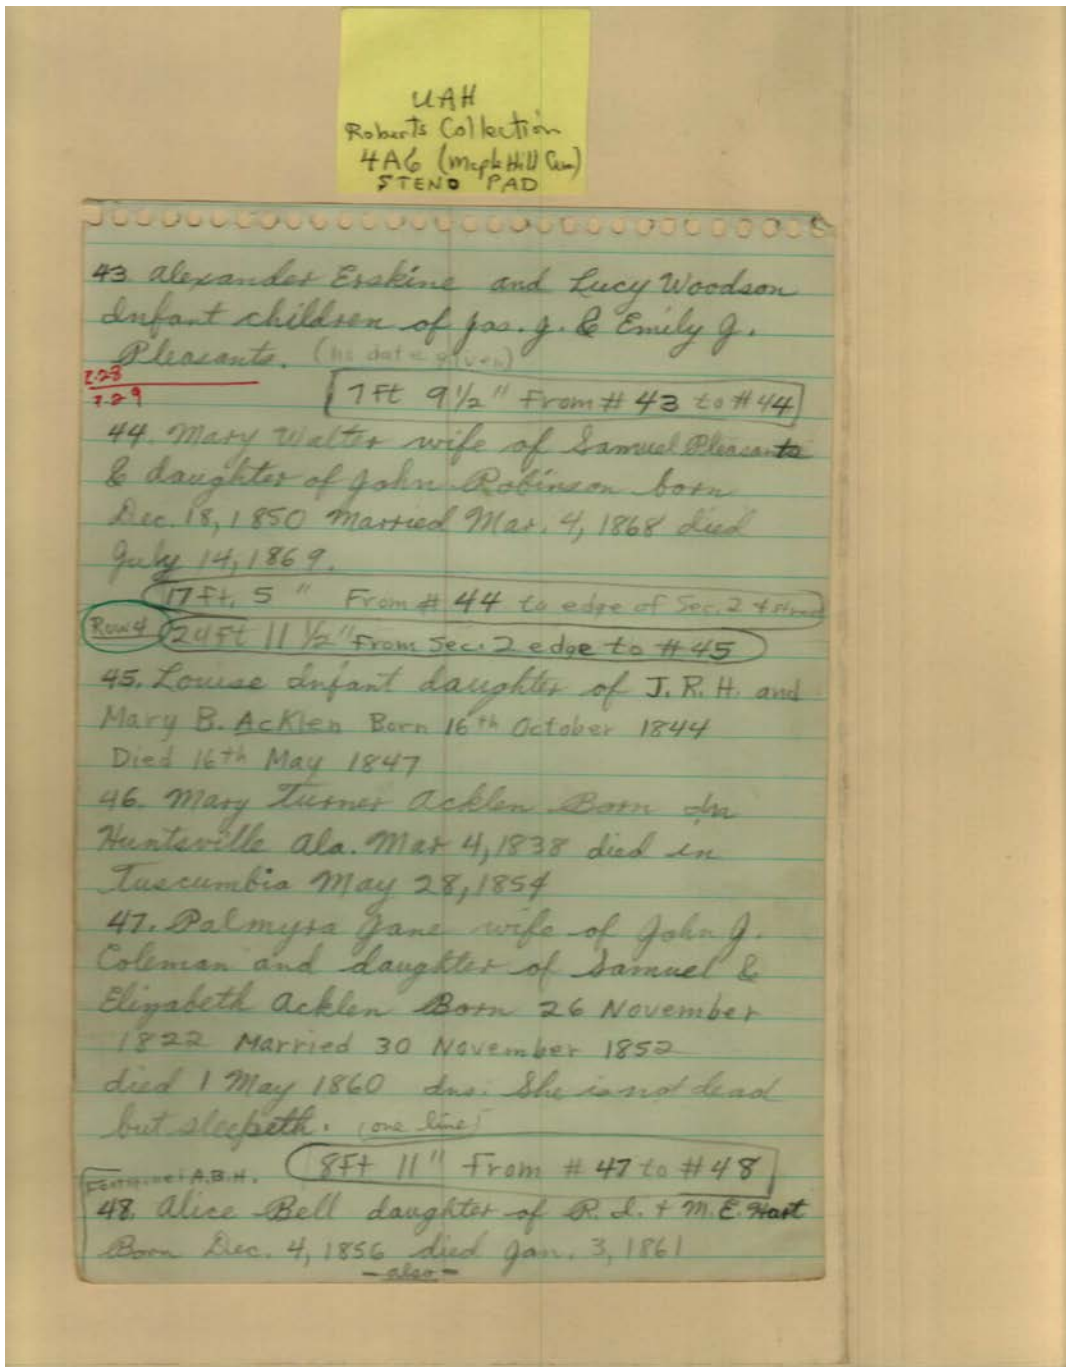 UAH
Roberts Collection
4A6 (Maple Hill Cem)
STENO PAD
43. Alexander Erskine and Lucy Woodson
Infant children of Jas. J. & Emily J.
Pleasants. (no date given)
7.28
7.29
7 Ft 9 1/2" From # 43 to # 44
44. Mary Walter wife of Samuel Pleasants
& daughter of John Robinson born
Dec. 18, 1850 Married Mar. 4, 1868 died
July 14, 1869.
17 Ft. 5 " From # 44 to edge of Sec. 2 &
Row 4 24 Ft 11 1/2" From Sec. 2 edge to # 45
45. Louise Infant daughter of J. R. H. and
Mary B. Acklen Born 16th October 1844
Died 16th May 1847
46. Mary Turner Acklen Born In
Huntsville Ala. Mar 4, 1838 died in
Tuscumbia May 28, 1854
47. Palmyra Jane wife of John J.
Coleman and daughter of Samuel &
Elizabeth Acklen Born 26 November
1822 Married 30 November 1852
died 1 May 1860 Ins: She is not dead
but sleepeth. (one line)
8 Ft 11" From # 47 to # 48
A.B.H.
48. Alice Bell daughter of R. I. + M. E. Hart
Born Dec. 4, 1856 died Jan. 3, 1861
- also -